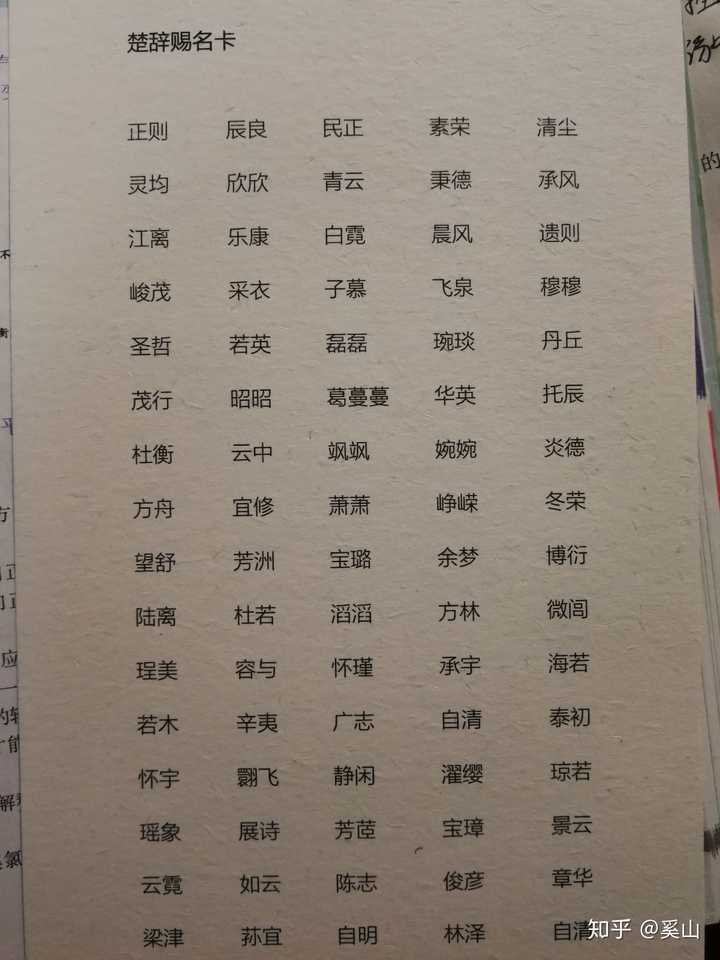 楚辞赐名卡
正则 辰良 民正 素荣 清尘
灵均 欣欣 青云 秉德 承风
江离 乐康 白霓 晨风 遗则
峻茂 采衣 子慕 飞泉 穆穆
圣哲 若英 磊磊 琬琰 丹丘
茂行 昭昭 葛蔓蔓 华英 托辰
杜衡 云中 飒飒 婉婉 炎德
方舟 宜修 萧萧 峥嵘 冬荣
望舒 芳洲 宝璐 余梦 博衍
陆离 杜若 滔滔 方林 微闾
珵美 容与 怀瑾 承宇 海若
若木 辛夷 广志 自清 泰初
怀宇 翾飞 静闲 濯缨 琼若
瑶象 展诗 芳茝 宝璋 景云
云霓 如云 陈志 俊彦 章华
梁津 荪宜 自明 林泽 自清
知乎 @奚山
的
不
衡
平
方
应
一
的转
才能
解释
氯